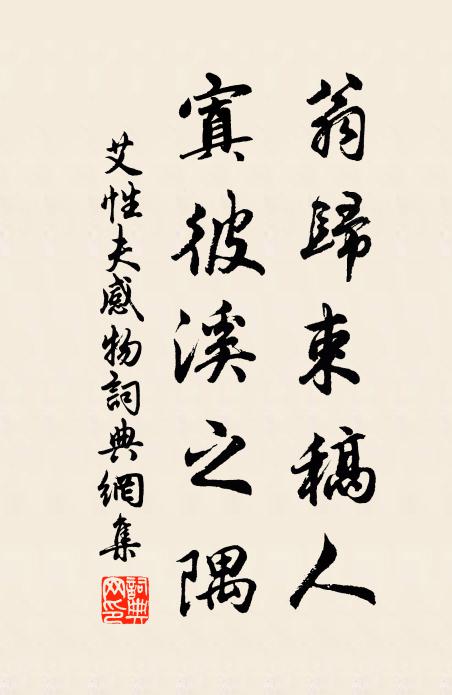 翁歸束稿人
寘彼溪之隅
艾性夫感物詞典網集
詞典網印